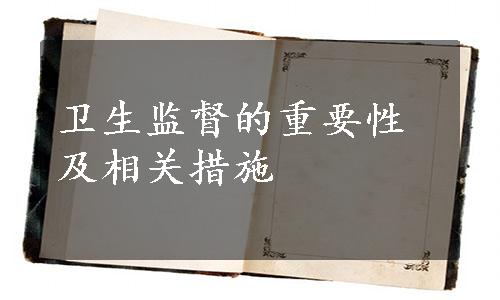 卫生监督的重要性
及相关措施